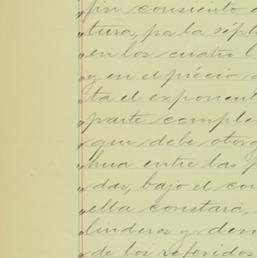 fin consiento e
„tura, por la sépti
„en los cuatro l
„y en el précio d
„ta el exponent
„parte comple
„que debe otorg
„hua entre las p
„das, bajo el con
„ella constará,
„linderos y dem
„de los referidos